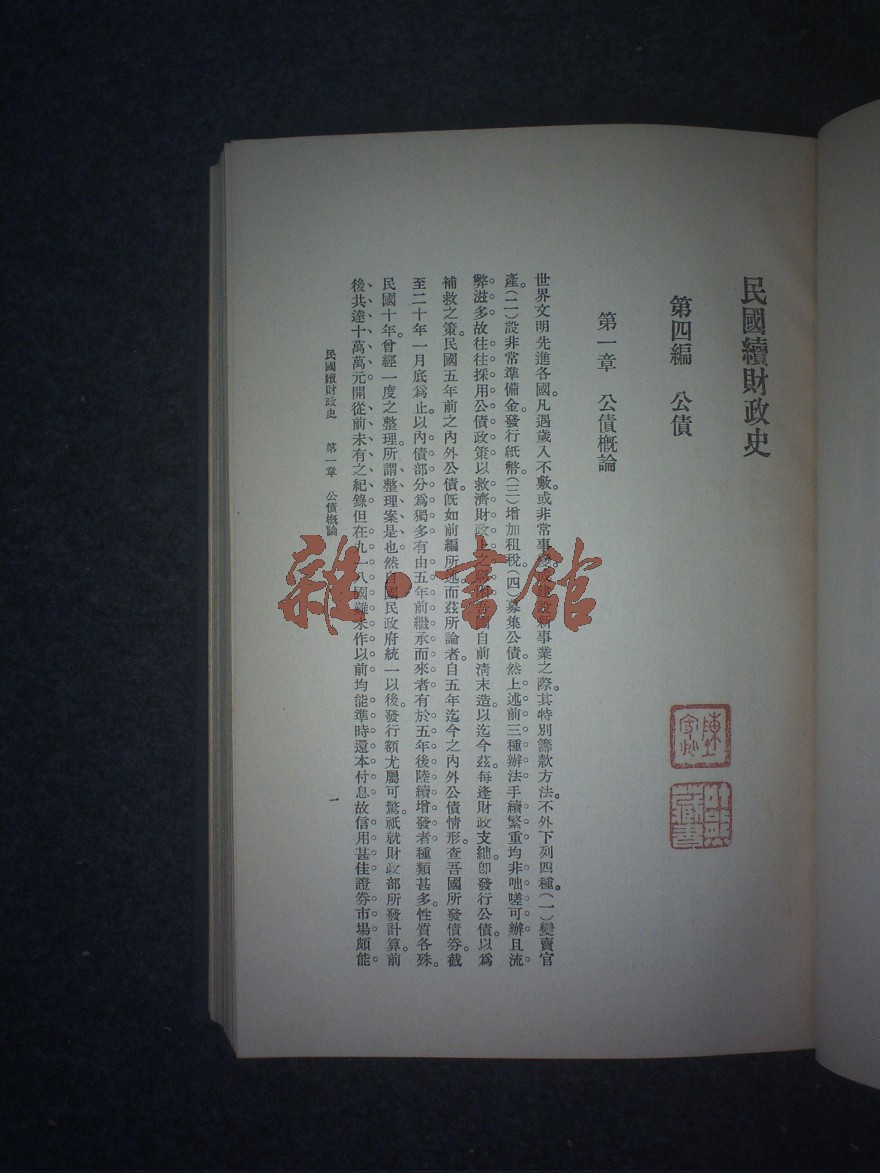 民國續財政史
第四編　公債
第一章　公債概論
世界文明先進各國。凡遇歲入不敷或非常事變或建設新事業之際。其特別籌款方法。不外下列四種。(一)變賣官
產。(二)設非常準備金。發行紙幣。(三)增加租稅。(四)募集公債。然上述前三種辦法手續繁重均非咄嗟可辦且流
弊滋多故往往採用公債政策以救濟財政上之吾國自前淸末造。以迄今茲。每逢財政支絀。卽發行公債。以爲
補救之策。民國五年前之內外公債。旣如前編所述。而茲所論者。自五年迄今之內外公債情形。查吾國所發債劵。截
至二十年一月底爲止。以內債部分爲獨多。有由五年前繼承而來者。有於五年後陸續增發者。種類甚多。性質各殊。
民國十年。曾經一度之整理。所謂整理案是也。然自國民政府統一以後。發行額尤屬可驚。祇就財政部所發計算。前
後共達十萬萬元。開從前未有之紀錄。但在九一八國難未作以前。均能準時還本付息。故信用甚佳。證劵市場。頗能
民國續財政史　第一章　公債概論
一
雜·書館
藏書